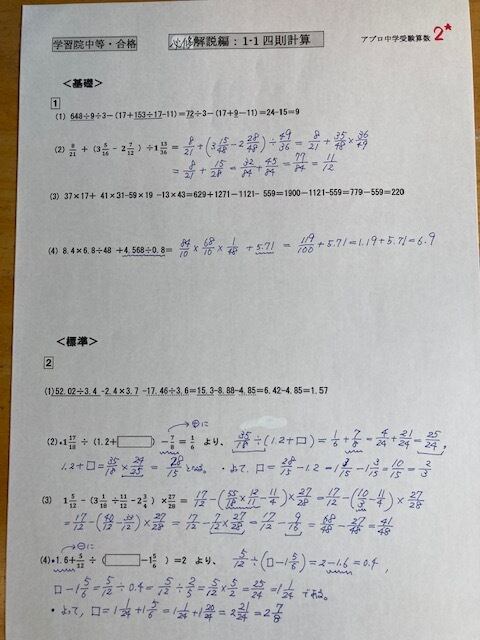 学習院中等・合格 必修解説編：1-1 四則計算 アプロ中学受験算数 2*
＜基礎＞
1
(1) 648÷9÷3−(17+153÷17-11)=72÷3−(17+9−11)=24-15=9
(2) 8/21 + (3 5/16 - 2 7/12) ÷1 13/36 = 8/21 + (3 15/48 - 2 28/48) ÷ 49/36 = 8/21 + 35/48 × 36/49
= 8/21 + 15/28 = 32/84 + 45/84 = 77/84 = 11/12
(3) 37×17+ 41×31-59×19 -13×43=629+1271-1121- 559=1900−1121-559=779−559=220
(4) 8.4×6.8÷48 +4.568÷0.8= 84/10 × 68/10 × 1/48 + 5.71 = 119/100 + 5.71 = 1.19+5.71=6.9
＜標準＞
2
(1)52.02÷3.4 -2.4×3.7 -17.46÷3.6=15.3-8.88-4.85=6.42-4.85=1.57
→⊕に
(2)•1 17/18 ÷ (1.2+□) - 7/8 = 1/6 より、 35/18 ÷ (1.2+□) = 1/6 + 7/8 = 4/24 + 21/24 = 25/24 ;
1.2+□= 35/18 × 24/25 = 28/15 となる。 ・よって、□= 28/15 - 1.2 = 1 13/15 - 1 3/15 = 10/15 = 2/3
(3) 1 5/12 - (3 1/18 ÷ 11/12 - 2 3/4) × 27/28 = 17/12 - (55/18 × 12/11 - 11/4) × 27/28 = 17/12 - (10/3 - 11/4) × 27/28
= 17/12 - (40/12 - 33/12) × 27/28 = 17/12 - 7/12 × 27/28 = 17/12 - 9/16 = 68/48 - 27/48 = 41/48
→⊖に
(4)•1.6+ 5/12 ÷ (□-1 5/6) =2 より、 5/12 ÷ (□-1 5/6) = 2-1.6=0.4,
□-1 5/6 = 5/12 ÷ 0.4 = 5/12 ÷ 2/5 = 5/12 × 5/2 = 25/24 = 1 1/24 である。
・よって、□=1 1/24 + 1 5/6 = 1 1/24 + 1 20/24 = 2 21/24 = 2 7/8